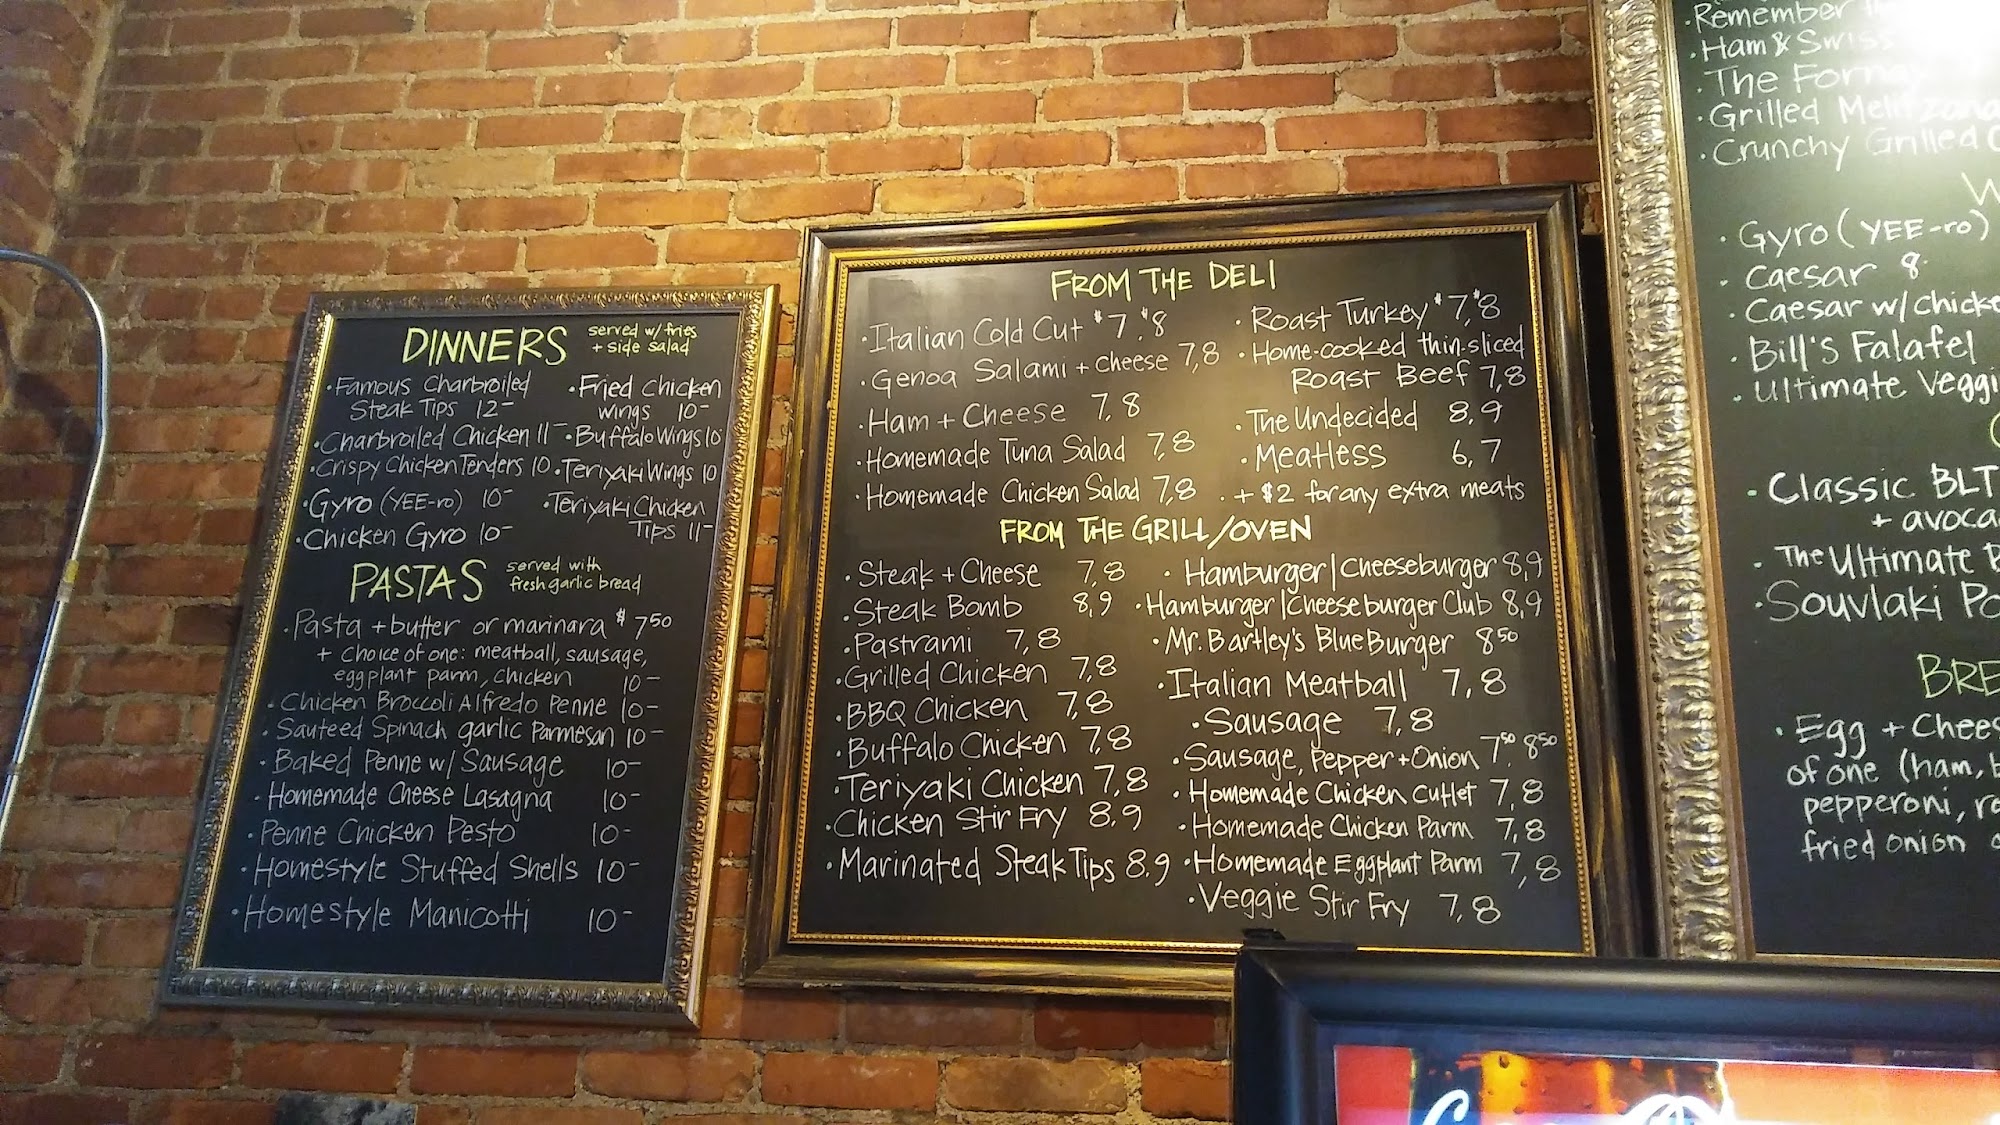 DINNERS served w/ fries
+ side salad
·Famous Charbroiled
Steak Tips 12-
·Charbroiled Chicken 11-
·Crispy Chicken Tenders 10
·Gyro (YEE-ro) 10-
·Chicken Gyro 10-
·Fried Chicken
wings 10-
·Buffalo Wings 10
·Teriyaki Wings 10
·Teriyaki Chicken
Tips 11-
PASTAS served with
fresh garlic bread
·Pasta + butter or marinara $7 50
+ Choice of one: meatball, sausage,
eggplant parm, chicken 10-
·Chicken Broccoli Alfredo Penne 10-
·Sauteed Spinach garlic Parmesan 10-
·Baked Penne w/ Sausage 10-
·Homemade Cheese Lasagna 10-
·Penne Chicken Pesto 10-
·Homestyle Stuffed Shells 10-
·Homestyle Manicotti 10-
FROM THE DELI
·Italian Cold Cut $7,$8
·Genoa Salami + Cheese 7,8
·Ham + Cheese 7,8
·Homemade Tuna Salad 7,8
·Homemade Chicken Salad 7,8
·Roast Turkey $7,$8
·Home-cooked thin-sliced
Roast Beef 7,8
·The Undecided 8,9
·Meatless 6,7
·+ $2 for any extra meats
FROM THE GRILL/OVEN
·Steak + Cheese 7,8
·Steak Bomb 8,9
·Pastrami 7,8
·Grilled Chicken 7,8
·BBQ Chicken 7,8
·Buffalo Chicken 7,8
·Teriyaki Chicken 7,8
·Chicken Stir Fry 8,9
·Marinated Steak Tips 8,9
·Hamburger/Cheeseburger 8,9
·Hamburger/Cheeseburger Club 8,9
·Mr. Bartley's Blue Burger 8 50
·Italian Meatball 7,8
·Sausage 7,8
·Sausage, Pepper + Onion 7 50, 8 50
·Homemade Chicken Cutlet 7,8
·Homemade Chicken Parm 7,8
·Homemade Eggplant Parm 7,8
·Veggie Stir Fry 7,8
·Remember
·Ham & Swiss
·The Fornay
·Grilled Melitzana
·Crunchy Grilled
W
·Gyro (YEE-ro)
·Caesar 8
·Caesar w/ Chicke
·Bill's Falafel
·Ultimate Veggi
·Classic BLT
+ avoca
·The Ultimate B
·Souvlaki Po
BRE
·Egg + Chees
of one (ham, b
pepperoni, ro
fried onion